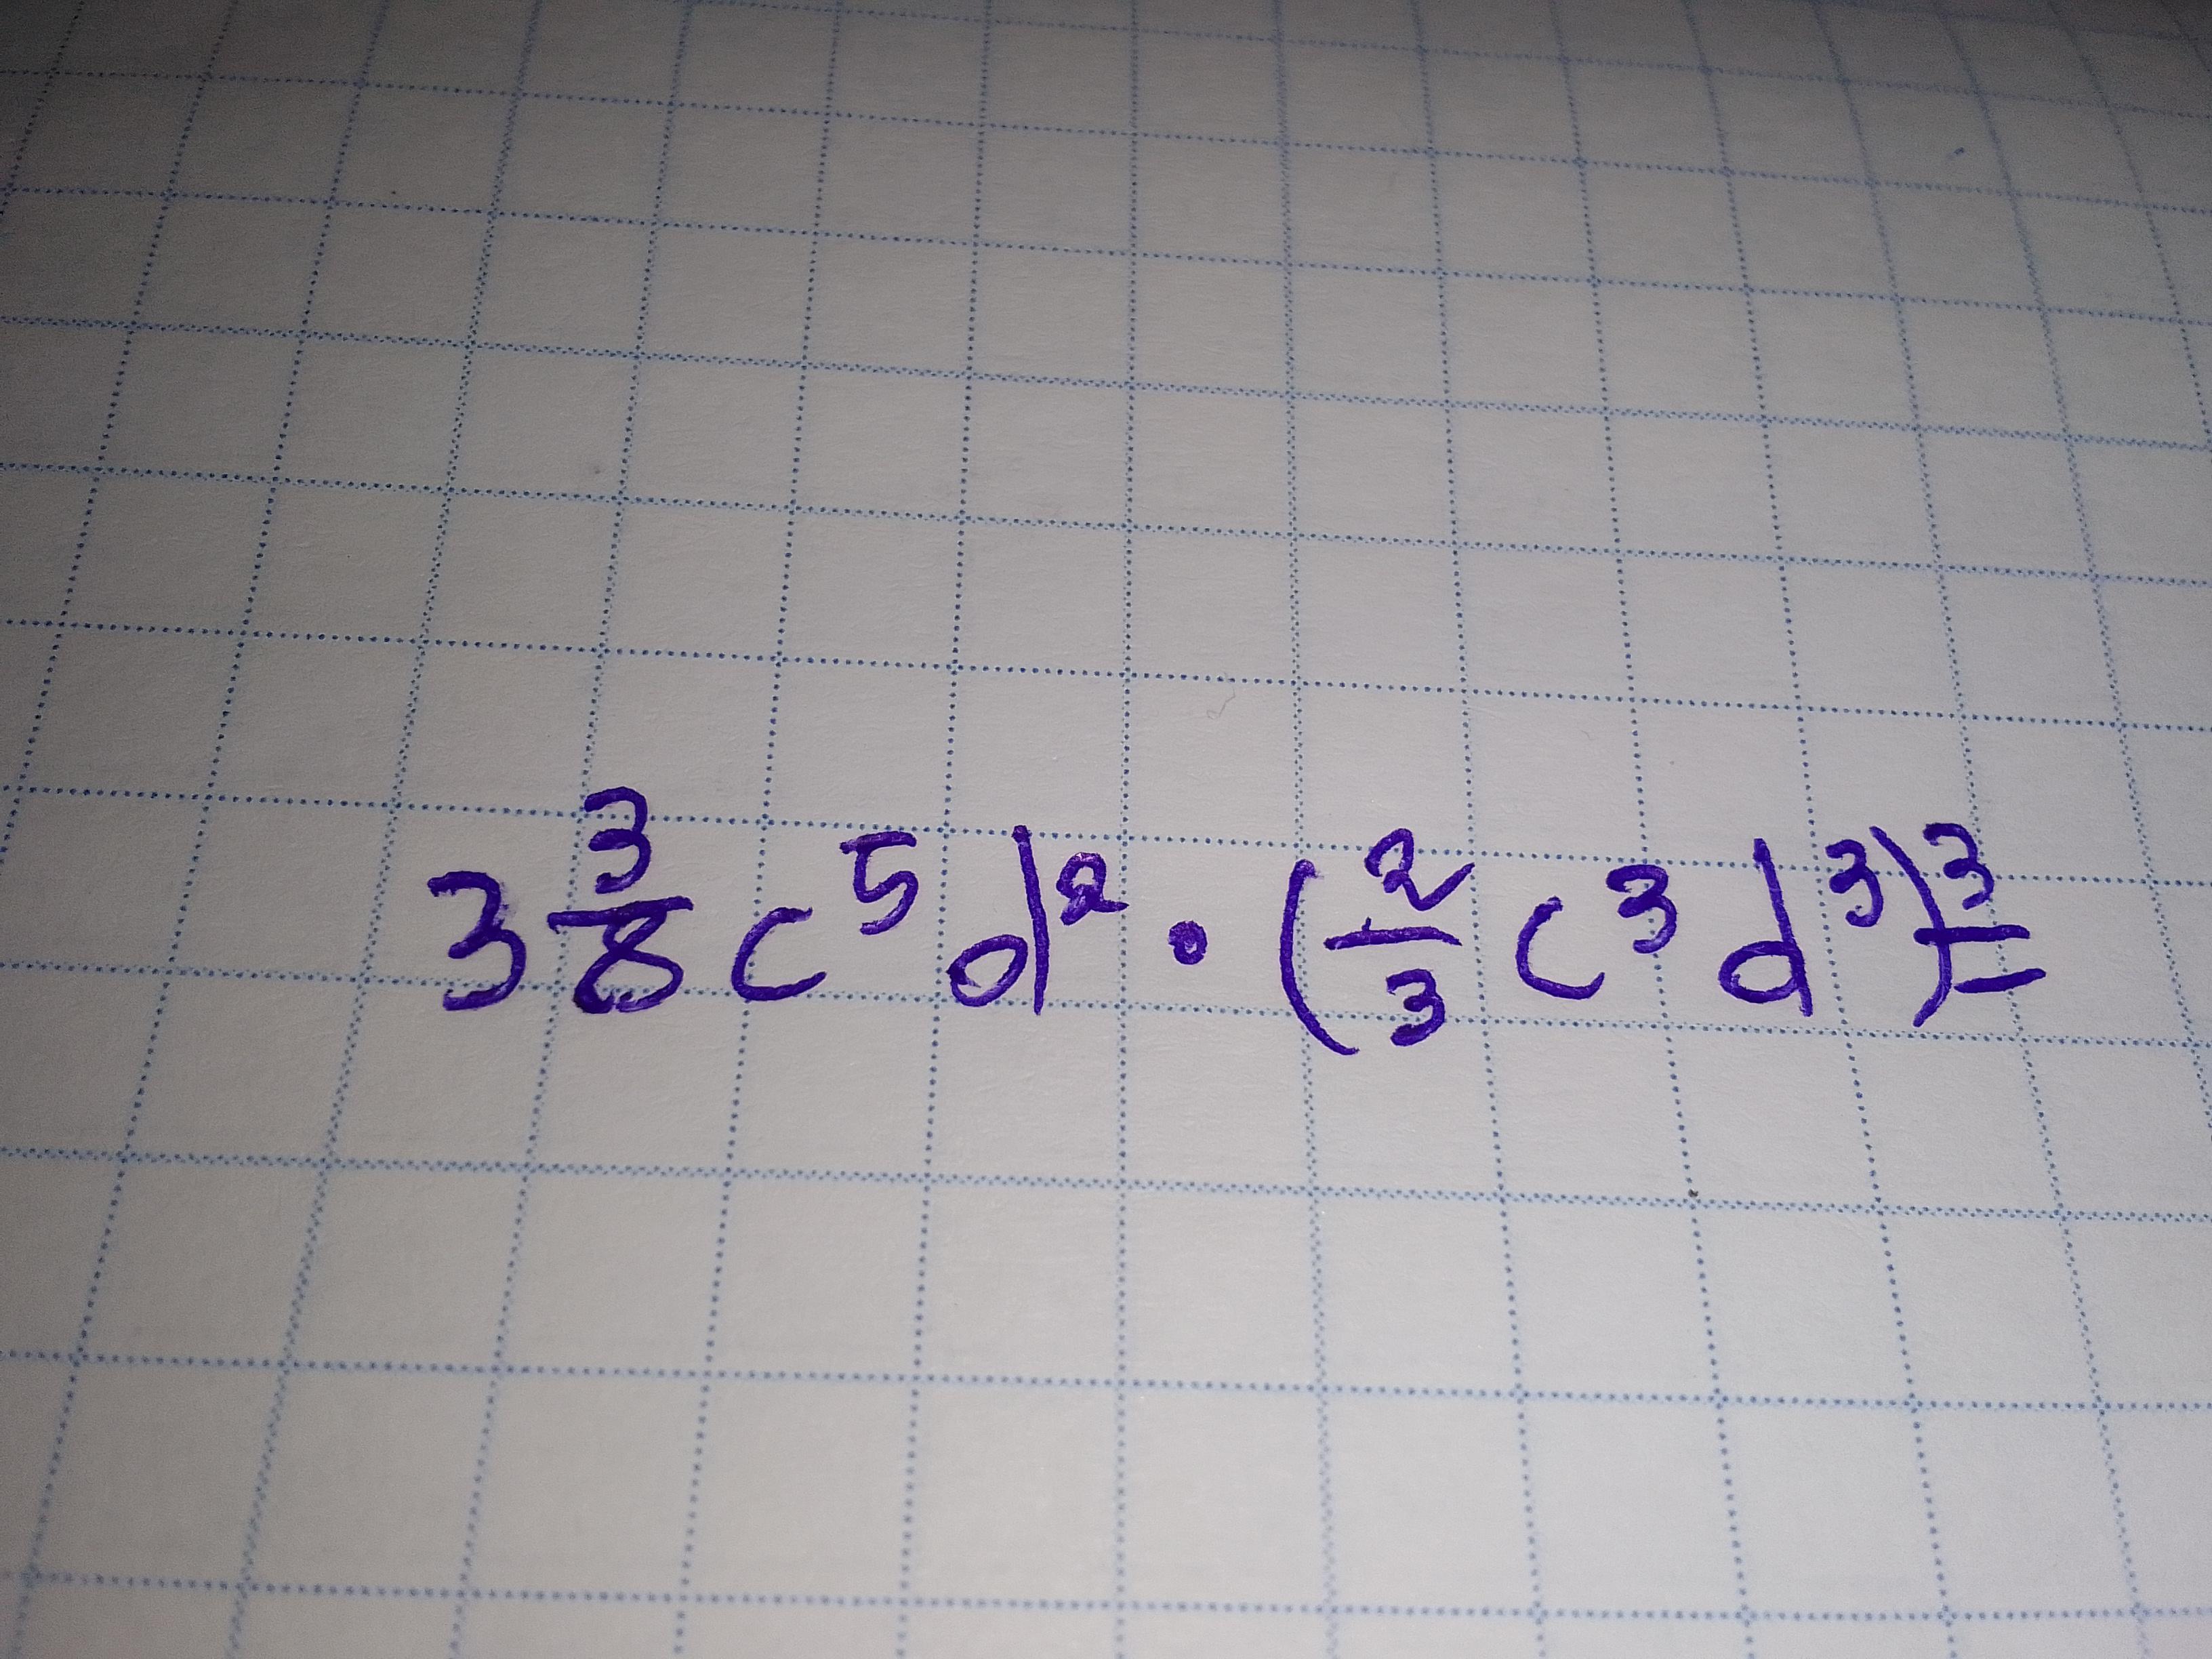 3 3/8 c⁵d² · (2/3 c³d³)³=